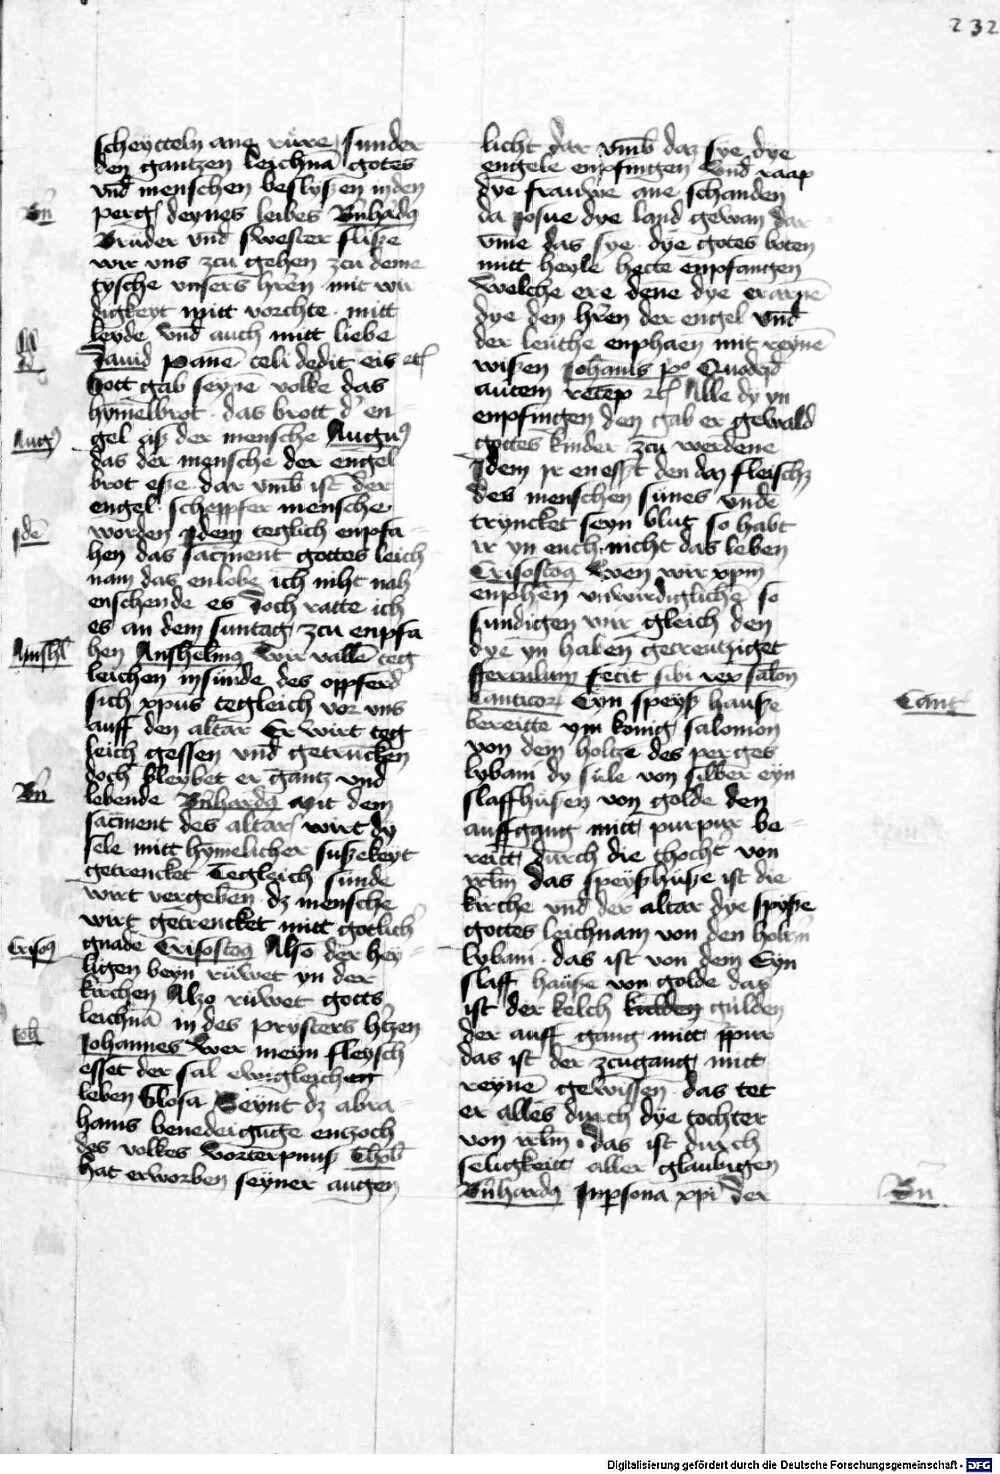 232
scheytteln ane rure sunder
den gantzen leichna gotes
vnd menschen beslyszen inden
Bn
perg deynes leibes Bnhardq
Bruder vnd swester flisze
wir vns zcu gehen zcu deme
tysche vnsers hren mit wir
digkeyt mitt vorchte mitt
leyde vnd auch mitt liebe
Dauid Pane celi dedit eis etc
Gott gab seyne volke das
hymelbrot das brott d' en-
Aug9
gel aß der mensche Augu9
das der mensche der engel
brot esze dar vmb ist der
engel scheppfer mensche
jde
worden jdem teglich enpfa-
hen das sacment gottes leich
nam das enlobe ich niht nah
enschende es Doch ratte ich
es an dem suntag zcu enpfa
Anshel
hen Anshelmq Wir vallen teg
leichen insunde des oppferd
sich xpus tegleich vor vns
auff den altar Er wirt teg
leich gessen vnd getrucken
doch bleybet er gantz vnd
Bn
lebende Bnhardq Mit dem
sacment des altars wirt dy
sele mitt hymelicher suszekeyt
getrencket Tegleich sunde
wirt vergeben dz mensche
wirt getrencket mitt gotlich
Crisoq
gnade Crisostoq Also der hey-
ligen beyn ruwet yn der
kirchen Alzo ruwet gotts
leichna in des prysters hrzen
Joh
Johannes Wer meyn fleysch
esset der sal ewigleichen
leben Glosa Seynt dz abra-
hams benedeigunge enczoch
des volkes vorterpnusz Thob
hat erworben seyner augen
licht dar vmb daz sye dye
engele enpfingen Vnd raap
dye frauwe ane schanden
da Josue dye land gewan dar
vme das sye dye gotes boten
mitt heyle hette enpfangen
Welche ere dene dye erarne
dye den hren der engel vnd
der leuthe enphaen mit reyne
wiszen Johanis po Quodqd
autem recep etc Alle dy yn
enpfingen den gab er gewald
gottes kinder zcu werdene
Jdem Jr en esszt den daz fleisch
des menschen sunes vnde
tryncket seyn blut so habt
ir yn euch nicht das leben
Crisostoq Wen wir xpm
enphen vnwirdigliche so
sundigen wir gleich den
dye yn haben getreutziget
fferculum fecit sibi rex salon
Cant
Canticor Eyn speysz hausze
bereitte ym konig salomon
von dem holtze des perges
lybani dy sule von silber eyn
slaffhusen von golde den
auffgang mitt purpur be-
reitt durch die thocht' von
irlm das speyszhusze ist die
kirche vnd der altar dye spysze
gottes leichnam von den holtzn
lybani das ist von dem Eyn
slaff hausze von golde das
ist der kelch gulden
der auff gang mitt ppur
das ist der zcugang mitt
reyne gewissen das tet
er alles durch dye tochter
von irlm das ist durch
selugkeitt aller glaubigen
Bn
Bnhardq Jnpsona xpi der
Digitalisierung gefördert durch die Deutsche Forschungsgemeinschaft - DFG